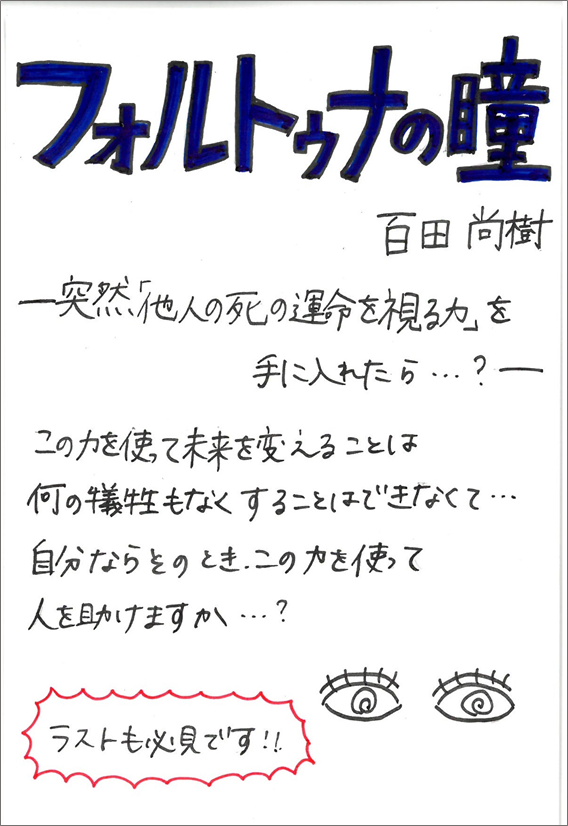 フォルトゥナの瞳
百田 尚樹
―突然、「他人の死の運命を視る力」を
手に入れたら…?―
この力を使って未来を変えることは
何の犠牲もなくすることはできなくて…
自分ならそのとき、この力を使って
人を助けますか…?
ラストも必見です!!